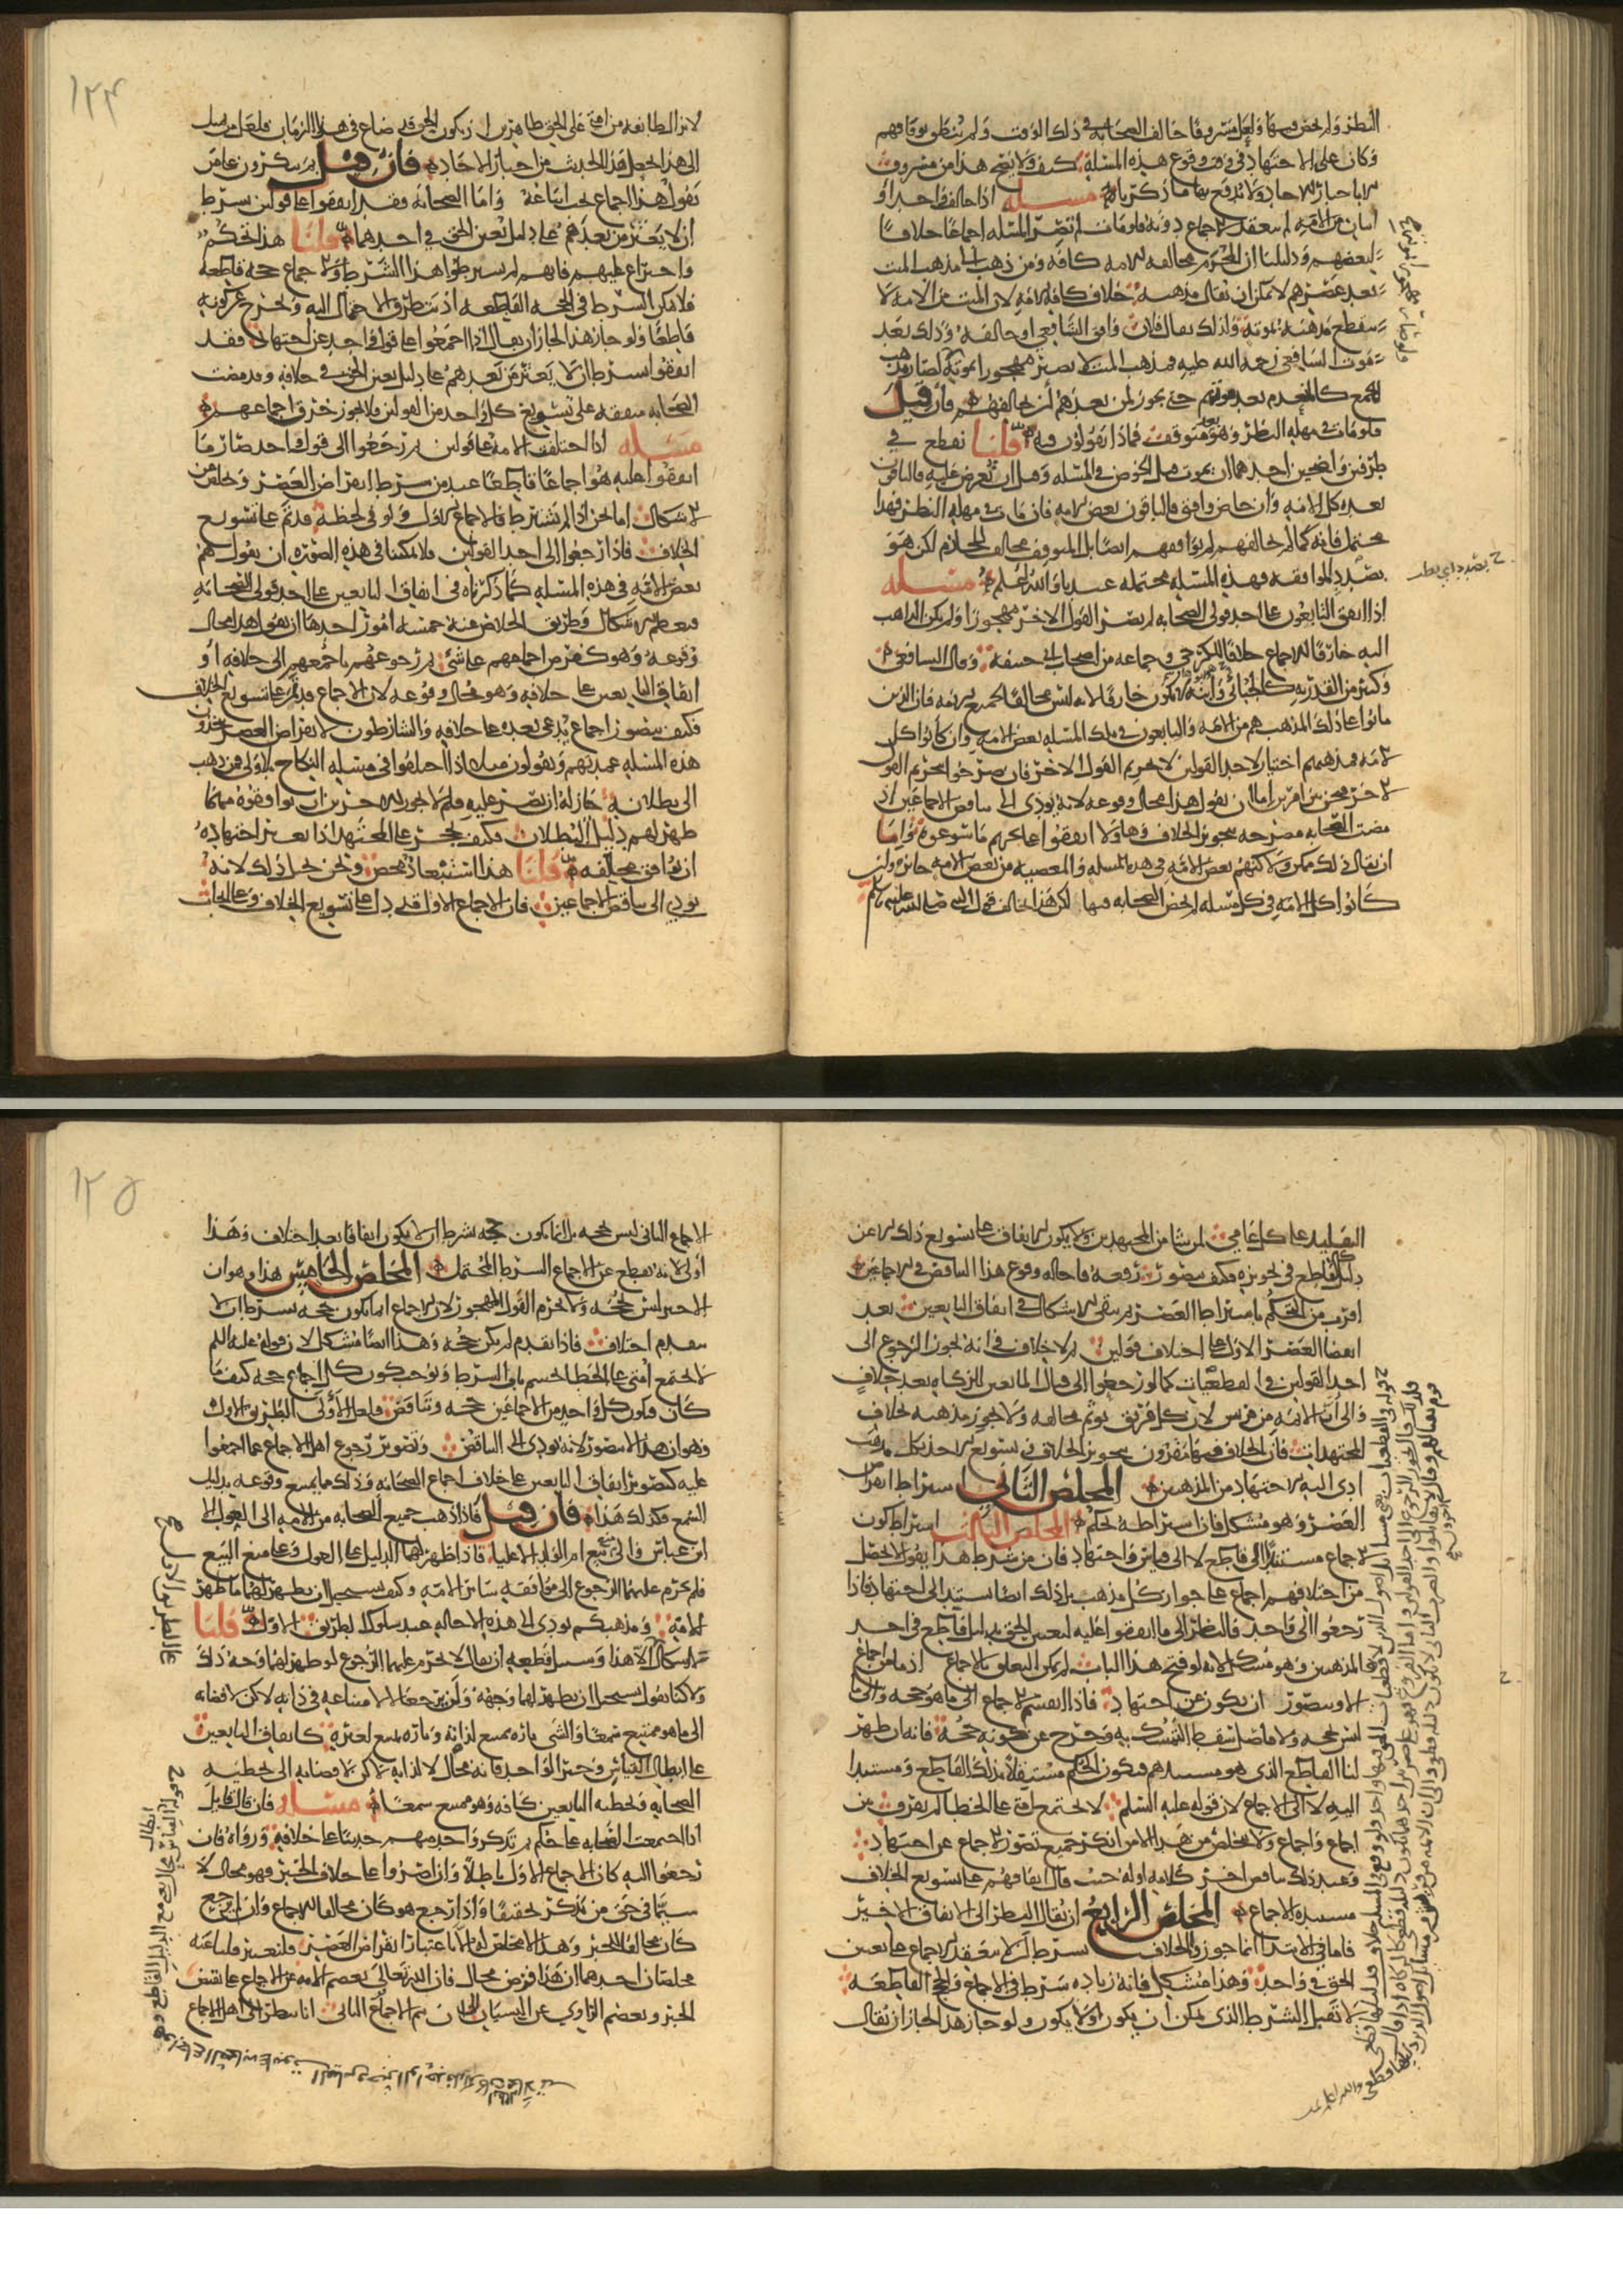 النظر ولم يخض فيها ولعل مسروقا خالف الصحابة في ذلك الوقت ولم ينطق بوفاقهم
وكان على الاجتهاد في وقت وقوع هذه المسئلة كيف ولا يصح هذا من مسروق
الا باخبار الاحاد ولا يدفع بها ما ذكرناه مسئلة اذا خالف واحد او
اثنان من الامة لم ينعقد الاجماع دونه فلو مات لم تصر المسئلة اجماعا خلافا
لبعضهم ودليلنا ان المحرم مخالفة الامة كافة ومن ذهب الى مذهب الميت
بعد عصرهم لا يمكن ان يقال مذهبه خلاف كافة الامة لان الميت من الامة لا
ينقطع مذهبه بموته ولذلك يقال فلان وافق الشافعي او خالفه وذلك بعد
موت الشافعي رحمه الله عليه فمذهب الميت لا يصير مهجورا بموته ولو صار لصار مذهب
الجميع كالمنعدم بعد موتهم حتى يجوز لمن بعدهم ان يخالفهم فان قيل
فلو مات في مهلة النظر وهو بعد متوقف فماذا تقولون فيه قلنا نقطع في
طرفين واضحين احدهما ان يموت قبل الخوض في المسئلة وقبل ان تعرض عليه فالباقون
بعده كل الامة وان خاض وافتى فالباقون بعض الامة فان مات في مهلة النظر فهذا
محتمل فانه كما لم يخالفهم لم يوافقهم ايضا بل المتوقف مخالف للجازم لكن هو
بصدد الموافقة فهذه المسئلة محتملة عندنا والله اعلم مسئلة
اذا اتفق التابعون على احد قولي الصحابة لم يصر القول الاخر مهجورا ولم يكن الذاهب
اليه خارقا للاجماع خلافا للكرخي وجماعة من اصحاب ابي حنيفة وقال الشافعي
وكثير من القدرية كالجبائي وابنه لانه ليس مخالفا لجميع الامة فان الذين
ماتوا على ذلك المذهب هم من الامة والتابعون في تلك المسئلة بعض الامة وان كانوا كل
الامة فمذهبهم اختيار لاحد القولين لا تحريم القول الاخر فان صرحوا بتحريم القول
الاخر فنحن بين امرين اما ان نقول هذا محال وقوعه لانه يؤدي الى تناقض الاجماعين اذ
مضت الصحابة مصرحة بتجويز الخلاف وهاولا اتفقوا على تحريم ما سوغوه واما
ان يقال ذلك ممكن ولاكنهم بعض الامة في هذه المسئلة والمعصية من بعض الامة جائزة وان
كانوا كل الامة في كل مسئلة لم يخض الصحابة فيها لكن هذا يخالف قول النبي صلى الله عليه وسلم
لا تزال طائفة من امتي على الحق ظاهرين اذ يكون الحق قد ضاع في هذا الزمان فلعل من يميل
الى هذا يجعل هذا الحديث من اخبار الاحاد فان قيل بم تنكرون على من
يقول هذا اجماع يجب اتباعه واما الصحابة فقد اتفقوا على قولين بشرط
ان لا يعثر من بعدهم على دليل يعين الحق في احدهما قلنا هذا تحكم
واختراع عليهم فانهم لم يشترطوا هذا الشرط والاجماع حجة قاطعة
فلا يمكن الشرط في الحجة القاطعة اذ يتطرق الاحتمال اليه ويخرج عن كونه
قاطعا ولو جاز هذا لجاز ان يقال اذا اجمعوا على قول واحد عن اجتهاد فقد
اتفقوا بشرط ان لا يعثر من بعدهم على دليل يعين الحق في خلافه وقد مضت
الصحابة متفقة على تسويغ كل واحد من القولين فلا يجوز خرق اجماعهم
مسئلة اذا اختلفت الامة على قولين ثم رجعوا الى قول واحد صار ما
اتفقوا عليه اجماعا قاطعا عند من شرط انقراض العصر وتخلص من
الاشكال اما نحن اذا لم نشترط فالاجماع الاول ولو في لحظة قد تم على تسويغ
الخلاف فاذا رجعوا الى احد القولين فلا يمكننا في هذه الصورة ان نقول هم
بعض الامة في هذه المسئلة كما ذكرناه في اتفاق التابعين على احد قولي الصحابة
فيعظم الاشكال وطريق الخلاص عنه خمسة امور احدها ان نقول هذا محال
وقوعه وهو كفرض اجماعهم على شئ ثم رجوعهم باجمعهم الى خلافه او
اتفاق التابعين على خلافه وهو محال وقوعه لان الاجماع قد تم على تسويغ الخلاف
فكيف يتصور اجماع يدعي بعده على خلافه والشارطون لانقراض العصر يتخذون
هذه المسئلة عمدتهم ويقولون مثلا اذا اختلفوا في مسئلة النكاح بلا ولي فمن ذهب
الى بطلانه جاز له ان يصر عليه فلم لا يجوز للاخرين ان يوافقوه مهما
ظهر لهم دليل البطلان وكيف يحجر على المجتهد اذا تغير اجتهاده
ان يوافق مخالفه قلنا هذا استبعاد محض ونحن نحيل ذلك لانه
يودي الى تناقض الاجماعين فان الاجماع الاول قد دل على تسويغ الخلاف وعلى ايجاب
التقليد على كل عامي لمن شا من المجتهدين ولا يكون الاتفاق على تسويغ ذلك الا عن
دليل قاطع في تجويزه وكيف يتصور رفعه فاحالة وقوع هذا التناقض في الاجماعين
اقرب من التحكم باشتراط العصر ثم يبقى الاشكال في اتفاق التابعين بعد
انقضا العصر الاول على اختلاف قولين ثم لا خلاف في انه يجوز الرجوع الى
احد القولين في القطعيات كما لو رجعوا الى قتال المانعين الزكاة بعد خلاف
والى ان الائمة من قريش لان كل فريق يؤثم مخالفه ولا يجوز مذهبه بخلاف
المجتهدات فان الخلاف فيها مقرون بتجويز الخلاف وتسويغ الاخذ بكل مذهب
ادى اليه الاجتهاد من المذهبين المخلص الثاني اشتراط انقراض
العصر وهو مشكل فان اشتراطه تحكم المخلص الثالث اشتراط كون
الاجماع مستندا الى قاطع لا الى قياس واجتهاد فان من شرط هذا يقول لا يحصل
من اختلافهم اجماع على جواز كل مذهب بل ذلك ايضا يستند الى اجتهاد فاذا
رجعوا الى واحد فالنظر الى ما اتفقوا عليه لتعين الحق بدليل قاطع في احد
المذهبين وهو مشكل لانه لو فتح هذا الباب لم يمكن التعلق بالاجماع اذ ما من اجماع
الا ويتصور ان يكون عن اجتهاد فاذا انقسم الاجماع الى ما هو حجة والى ما
ليس بحجة ولا فاصل سقط التمسك به وخرج عن كونه حجة فانه ان ظهر
لنا القاطع الذي هو مستندهم فيكون الحكم مستقلا بذلك القاطع ومستندا
اليه لا الى الاجماع لان قوله عليه السلم لا تجتمع امتي على الخطا لم يفرق بين
اجماع واجماع ولا يتخلص من هذا الا من انكر جميع تصور الاجماع عن اجتهاد
وعند ذلك يناقض اخر كلامه اوله حيث قال اتفاقهم على تسويغ الخلاف
مستنده الاجماع المخلص الرابع ان يقال النظر الى الاتفاق الاخير
فاما في الابتدا انما جوزوا الخلاف بشرط ان لا ينعقد الاجماع على تعيين
الحق في واحد وهذا مشكل فانه زيادة شرط في الاجماع والحجج القاطعة
لا تقبل الشرط الذي يمكن ان يكون او لا يكون ولو جاز هذا لجاز ان يقال
الاجماع الثاني ليس بحجة بل انما يكون حجة بشرط ان لا يكون اتفاقا بعد اختلاف وهذا
اولى لانه يقطع عن الاجماع الشرط المحتمل المخلص الخامس هذا وهو ان
الاخير ليس بحجة ولا يحرم القول المهجور لان الاجماع انما يكون حجة بشرط ان لا
يتقدم اختلاف فاذا تقدم لم يكن حجة وهذا ايضا مشكل لان قوله عليه السلم
لا تجتمع امتي على الخطا يحسم باب الشرط ويوجب كون كل اجماع حجة كيف ما
كان فيكون كل واحد من الاجماعين حجة ويتناقض فلعل الاولى الطريق الاول
وهو ان هذا لا يتصور لانه يودي الى التناقض وتصوير رجوع اهل الاجماع عما اجمعوا
عليه كتصوير اتفاق التابعين على خلاف اجماع الصحابة وذلك مما يمتنع وقوعه بدليل
السمع فكذلك هذا فان قيل فاذا ذهب جميع الصحابة من الامة الى العول الا
ابن عباس والى منع بيع ام الولد الا عليا فاذا ظهر لهما الدليل على العول وعلى منع البيع
فلم يحرم عليهما الرجوع الى موافقة سائر الامة وكيف يستحيل ان يظهر لهما ما ظهر
للامة ومذهبكم يودي الى هذه الاحالة عند سلوك الطريق الاول قلنا
لا اشكال الا هذا وسبيل قطعه ان يقال لا يحرم عليهما الرجوع لو ظهر لهما وجه ذلك
ولاكنا نقول يستحيل ان يظهر لهما وجه او يرجعا لا لامتناعه في ذاته لاكن لافضائه
الى ما هو ممتنع سمعا والشي تارة يمتنع لذاته وتارة يمتنع لغيره كاتفاق التابعين
على ابطال القياس وخبر الواحد فانه محال لا لذاته لاكن لافضائه الى تخطية
الصحابة وتخطية التابعين كافة وهو ممتنع سمعا مسئلة فان قال قائل
اذا اجمعت الصحابة على حكم ثم تذكر واحد منهم حديثا على خلافه ورواه فان
رجعوا اليه كان الاجماع الاول باطلا وان اصروا على خلاف الخبر فهو محال لا
سيما في حق من يتذكر تحقيقا واذا رجع هو كان مخالفا للاجماع وان لم يرجع
كان مخالفا للخبر وهذا لا مخلص له الا باعتبار انقراض العصر فليعتبر قلنا عنه
مخلصان احدهما ان هذا فرض محال فان الله تعالى يعصم الامة عن الاجماع على نقيض
الخبر ويعصم الراوي عن النسيان الى ان يتم الاجماع الثاني انا ننظر الى اهل الاجماع